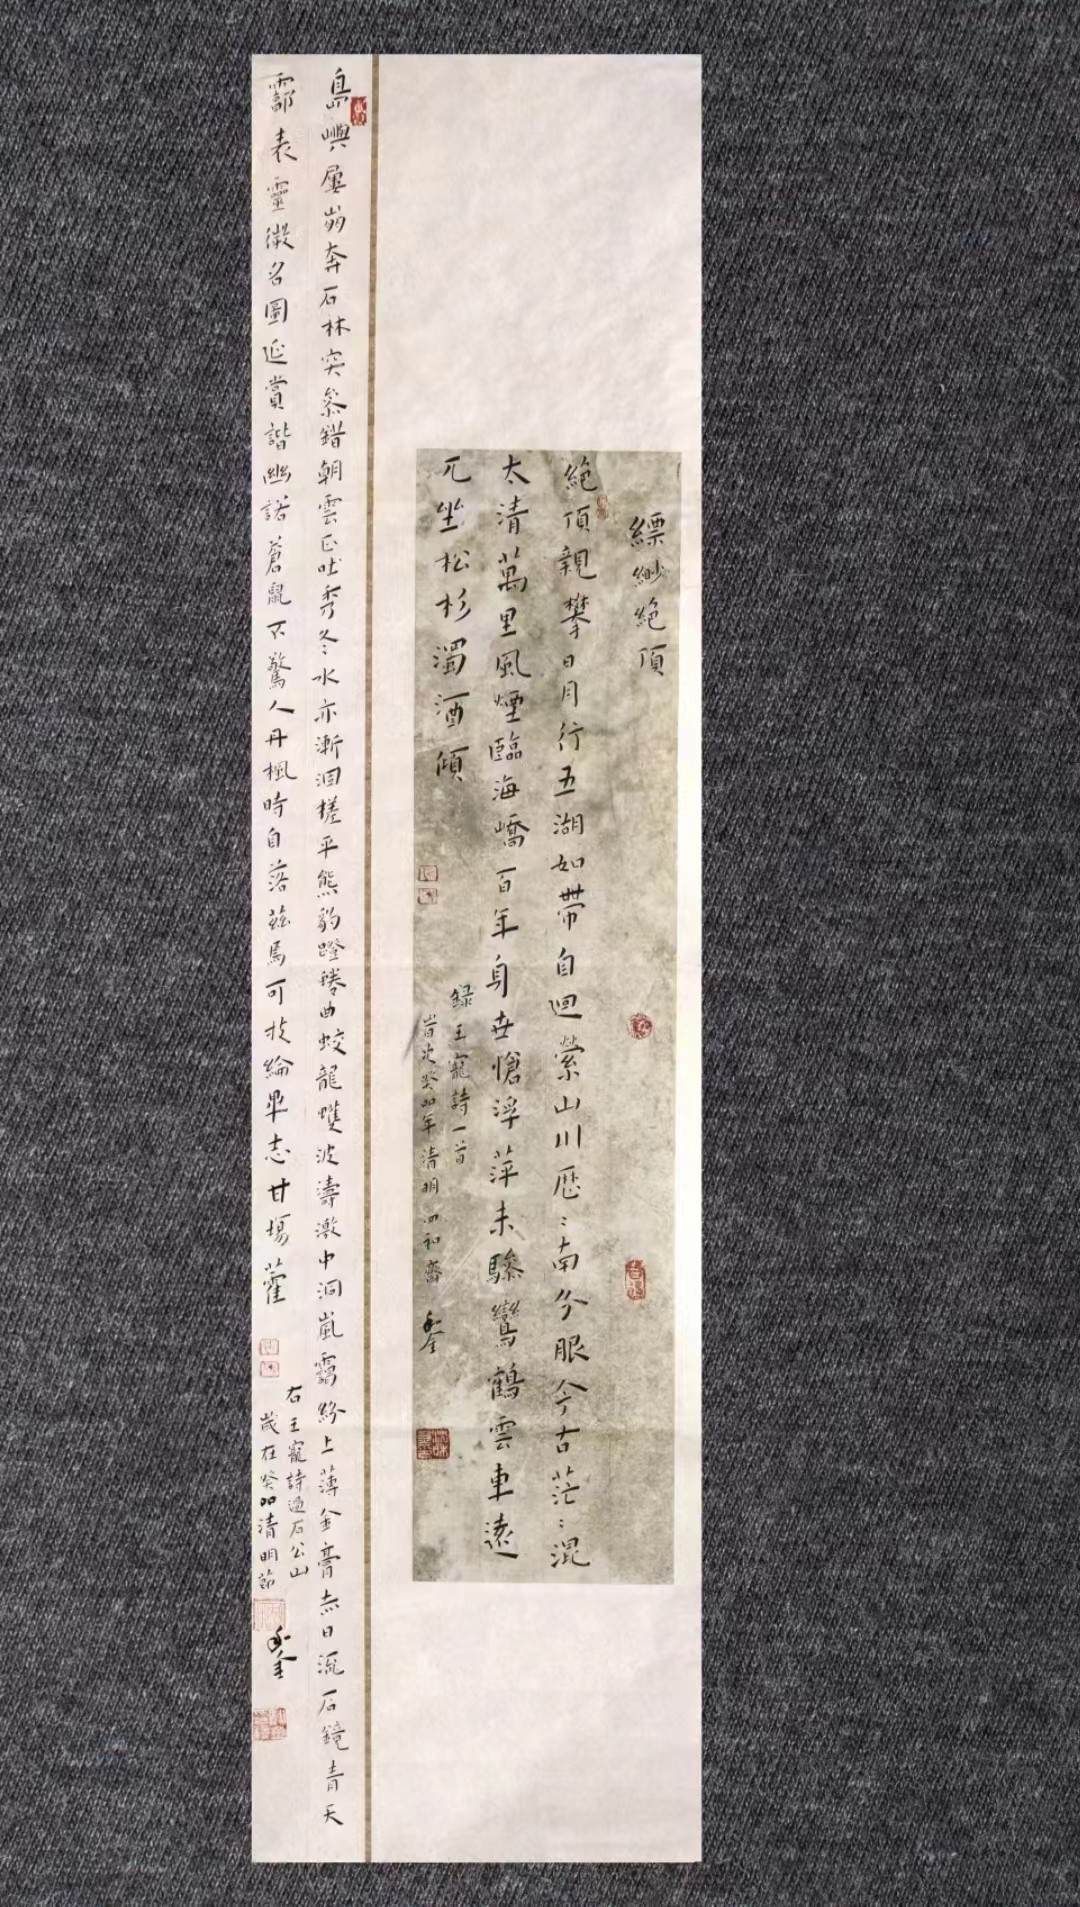 縹緲絕頂
絕頂親攀日月行五湖如帶自迴縈山川歷〻南分服今古茫〻混
太清萬里風煙臨海嶠百年身世愴浮萍未驂鸞鶴雲車遠
兀坐松杉濁酒傾
録王寵詩一首
峕次癸卯年清明四和齋
島嶼屢崩奔石林突參錯朝雲正吐秀冬水亦漸涸槎平熊豹蹬蜷曲蛟龍蠖波濤激中洞嵐靄紛上薄金膏赤日流石鏡青天
表靈徵名圖延賞諧幽諾蒼鼠不驚人丹楓時自落茲焉可投綸畢志甘場藿
右王寵詩過石公山
歲在癸卯清明節